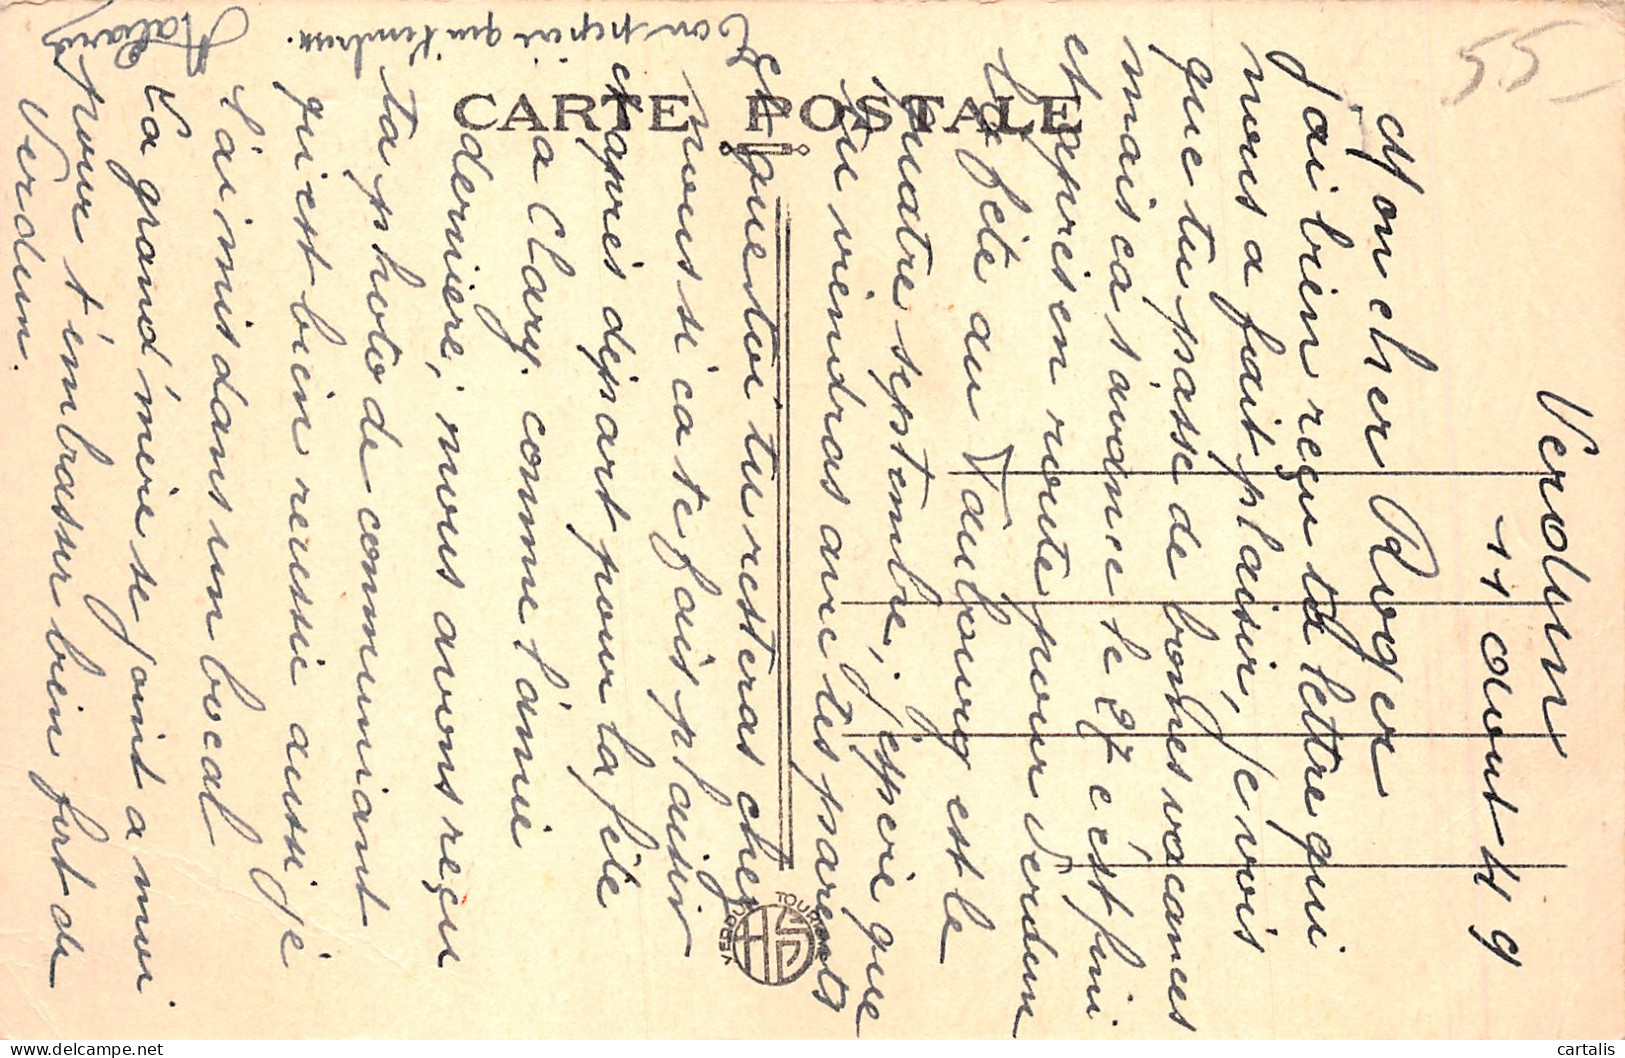 Verdun
11 août 49
Mon cher Roger
J'ai bien reçu ta lettre qui
nous a fait plaisir, Je vois
que tu passe de bonnes vacances
mais ca s'avance le 27 c'est fini
et après en route pour Verdun
la fête au Faubourg est le
quatre septembre, j'espère que
tu viendras avec tes parents
et que toi tu resteras chez
nous si ca te fais plaisir
et après départ pour la fête
a Clary. comme l'année
dernière, nous avons reçu
ta photo de communiant
qui est bien reussie aussi je
l'ai mis dans un bocal
La grand'mère se joint a moi
pour t'embrasser bien fort de
Verdun.
Ton pépère qui t'embrasse.
CARTE POSTALE
VERDUN TOURISME
55
cartalis
www.delcampe.net